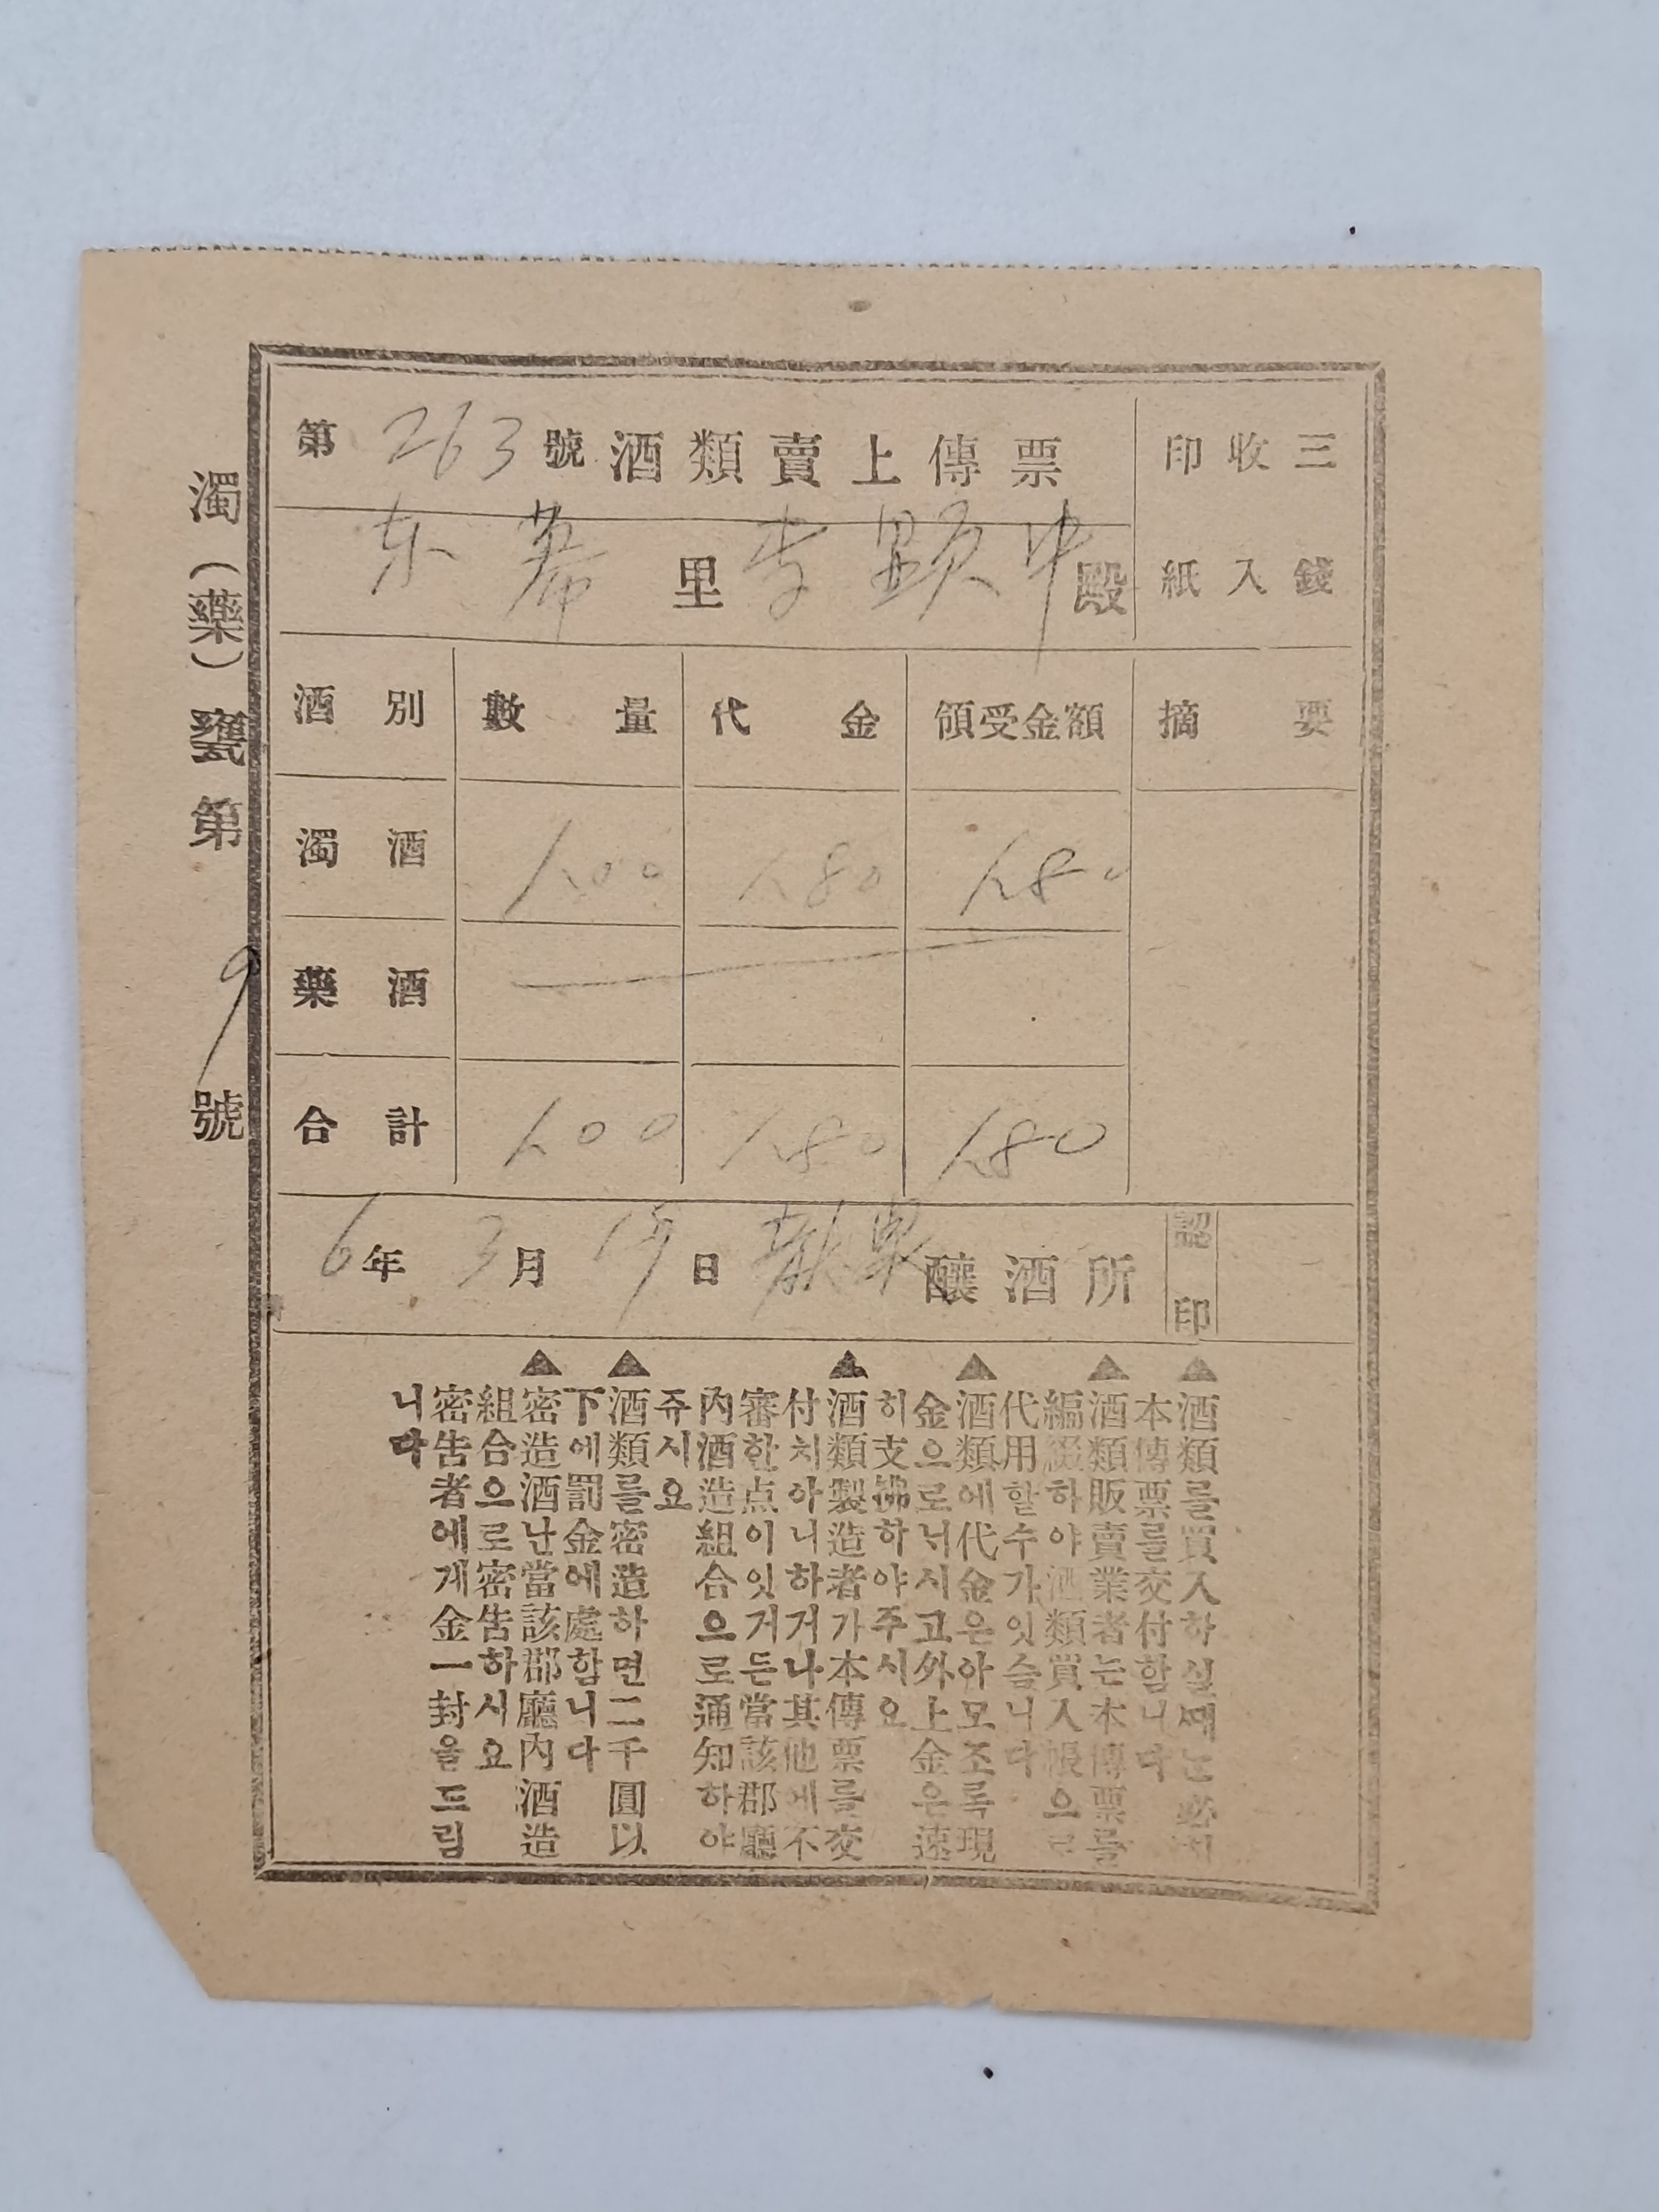 第 263 號 酒類賣上傳票
三錢
收入
印紙
东 里 李顕中 殿
酒別 數量 代金 領受金額 摘要
濁酒 100 180 180
藥酒
合計 100 180 180
6年 3月 日 釀酒所 認印
濁(藥)甕第 9 號
▲酒類를買入하실때는必히
本傳票를交付함니다
▲酒類販賣業者는本傳票를
編綴하야酒類買入帳으로
代用할수가잇슴니다
▲酒類에代金은아모조록現
金으로너시고外上金은速
히支拂하야주시요
▲酒類製造者가本傳票를交
付치아니하거나其他에不
審한点이잇거든當該郡廳
內酒造組合으로通知하야
쥬시요
▲酒類를密造하면二千圓以
下에罰金에處함니다
▲密造酒난當該郡廳內酒造
組合으로密告하시요
密告者에게金一封을드림
니다